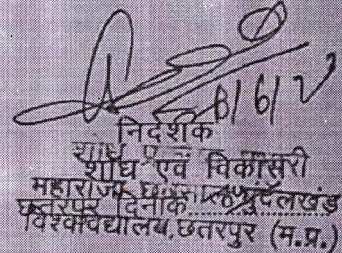 निदेशक
शोध एवं विकास
महाराजा छत्रसाल बुंदेलखंड
छतरपुर दिनांक
विश्वविद्यालय, छतरपुर (म.प्र.)